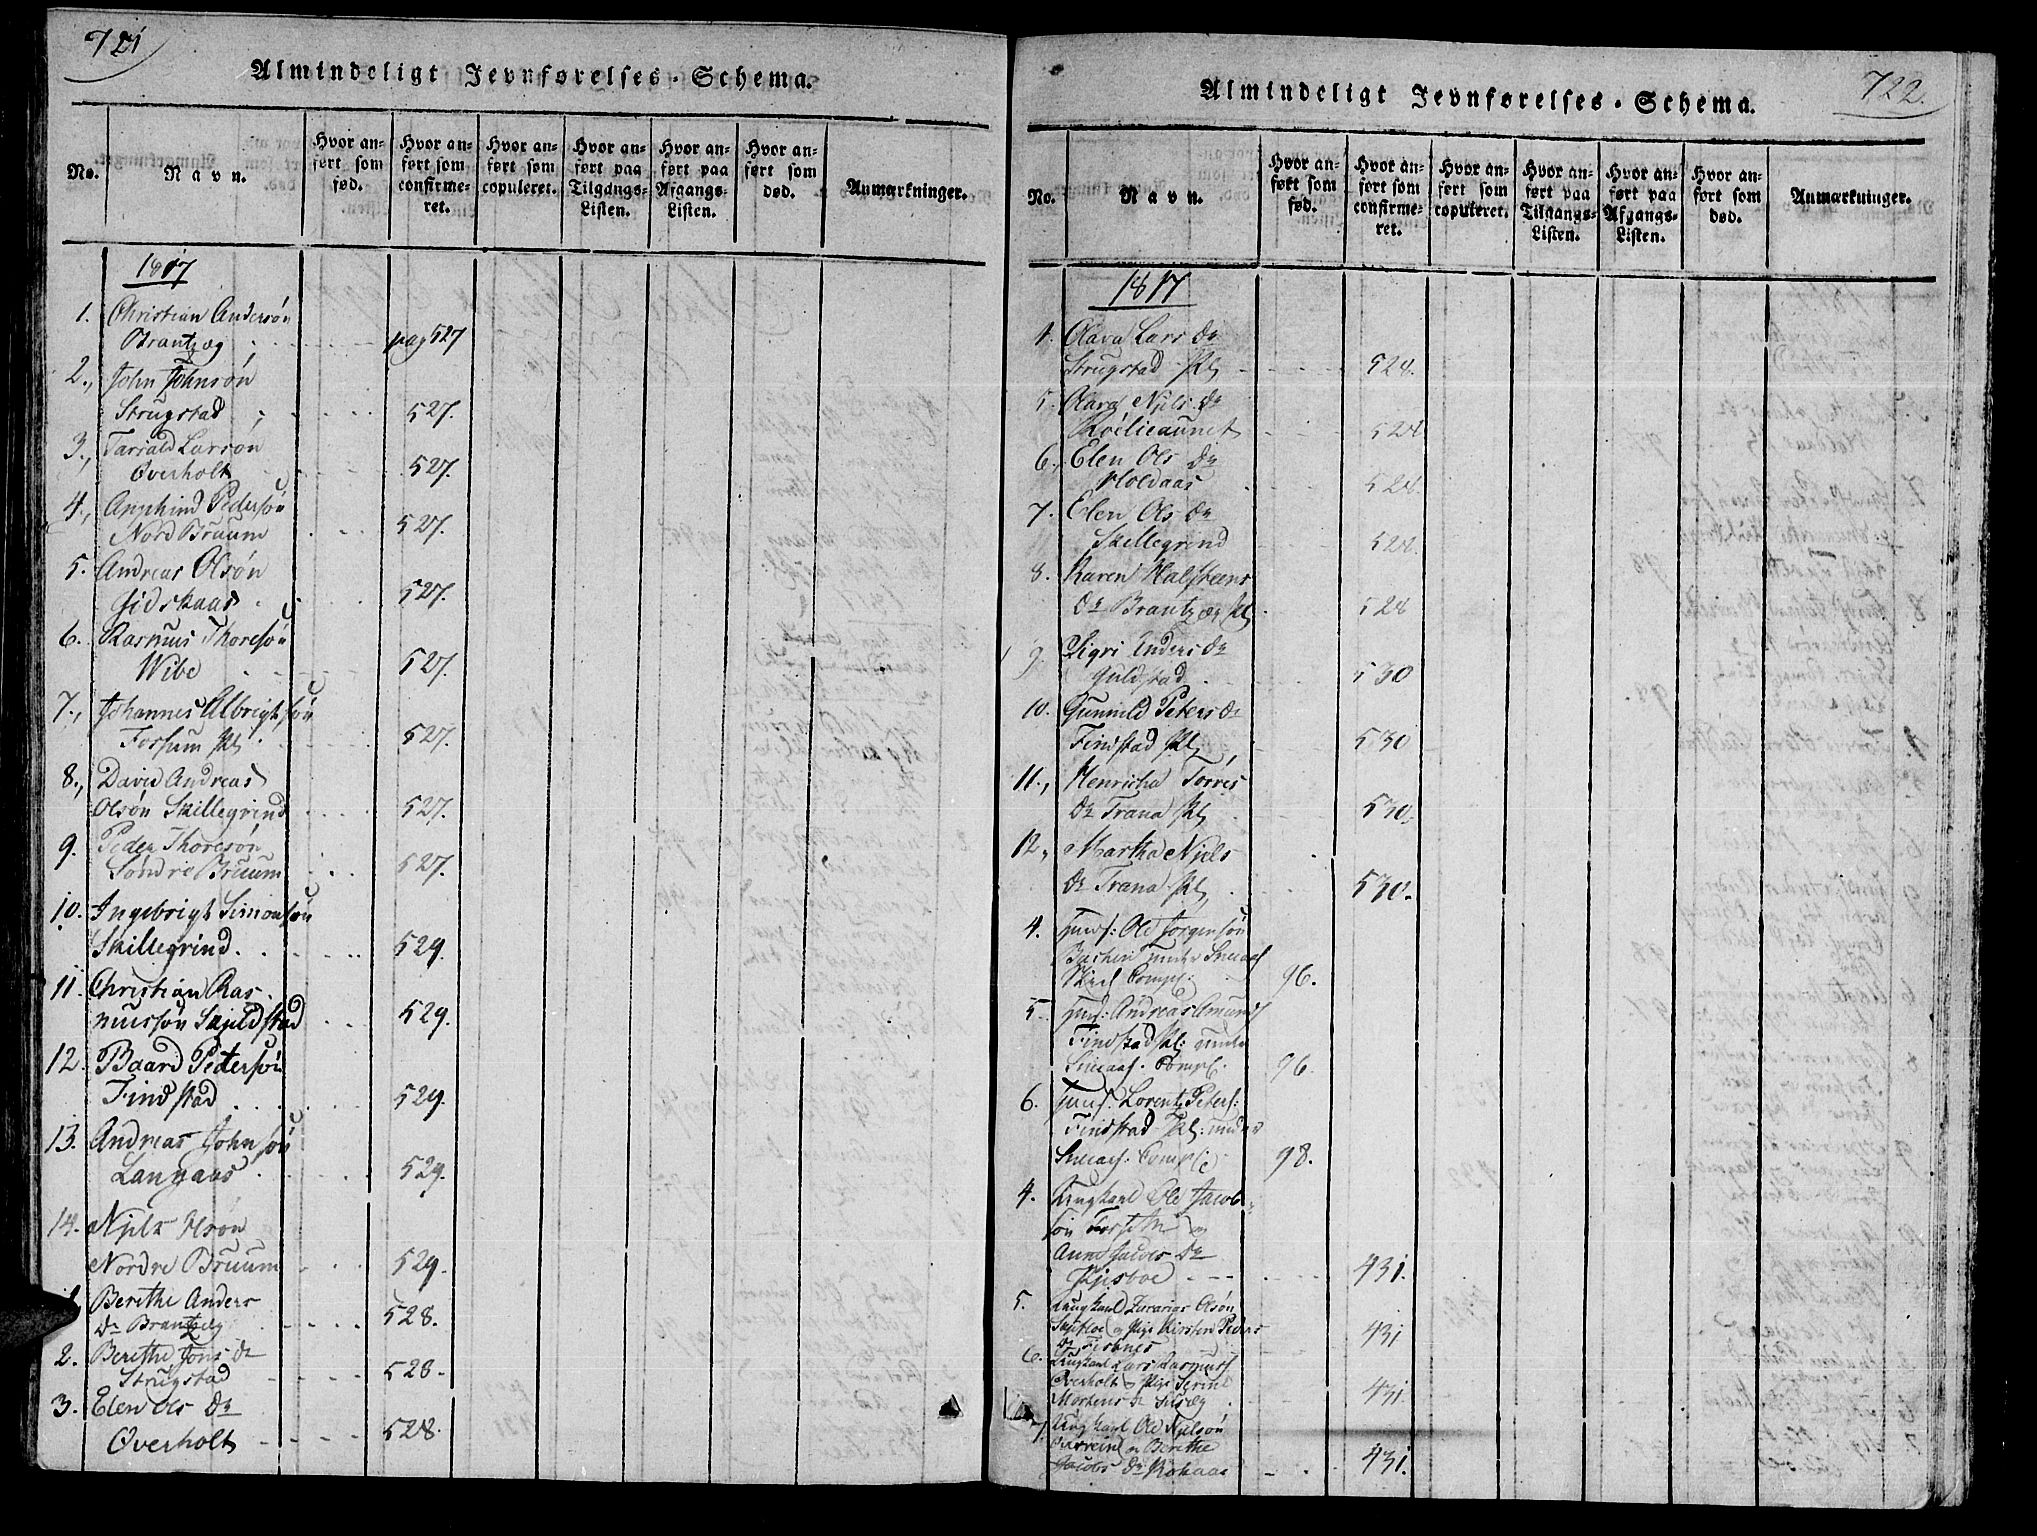 721
Almindeligt Jevnførelses-Schema.
No.
Navn.
Hvor an-
ført som
fød.
Hvor an-
ført som
confirme-
ret.
Hvor an-
ført som
copuleret.
Hvor an-
ført paa
Tilgangs-
Listen.
Hvor an-
ført paa
Afgangs-
Listen.
Hvor an-
ført som
død.
Anmærkninger.
1817
1. Christian Andersøn
Brantzæg pag 527
2., John Johnsøn
Strugstad 527.
3., Larsøn
Overholt 527.
4., Pedersøn
Nord Bruum 527.
5. Andreas Olsøn
527.
6. Rasmus Thoresøn
Wibe 527.
7., Johannes Albrigtsøn
Forsum Pl. 527.
8., David Andreas
Olsøn Skillegrind 527.
9. Peder Thoresøn
Søndre Bruum 527.
10. Ingebrigt Simonsøn
Skillegrind. 529.
11. Christian Ras-
mussøn Skjeldstad 529.
12. Baard Petersøn
Findstad 529.
13. Andreas Johnsøn
Langaas 529.
14. Njels Olsøn
Nordre Bruum 529.
1. Berethe Anders
Dr Brantzæg 528.
2. Berethe Jons Dr
Strugstad 528.
3. Elen Ols Dr
Overholt 528.
722.
Almindeligt Jevnførelses-Schema.
No.
Navn.
Hvor an-
ført som
fød.
Hvor an-
ført som
confirme-
ret.
Hvor an-
ført som
copuleret.
Hvor an-
ført paa
Tilgangs-
Listen.
Hvor an-
ført paa
Afgangs-
Listen.
Hvor an-
ført som
død.
Anmærkninger.
1817
4. Olava Lars Dr
Strugstad Pl. 528.
5. Njels Dr
528
6., Elen Ols Dr
Moldaas 528.
7. Elen Ols Dr
Skillegrind 528.
8. Karen Halsteens
Dr Brantzæg Pl. 528
9. Sigri Anders Dr
Guldstad 530
10. Gunnild Peters Dr
Findstad Pl. 530
11., Henricha Torres
Dr Trana Pl. 530.
12., Martha Njels
Dr Trana Pl. 530.
4. Ole Jørgensøn
under Sneaas
Compg. 96.
5. Andreas Amunds
Findstad Pl: under
Sneaas. Compg. 96.
6. Lorentz Peters:
Findstad Pl: under
Sneaas. Compg. 98.
4. Ungkarl Ole Jacob-
søn Forseth og
Anne Jacobs Dr
431.
5. Ungkarl Olsøn
og Pige Kirsten Peders
Dr 431
6. Ungkarl Lars Rasmuss
Overholt og Pige Serine
Mortens Dr 431.
7. Ungkarl Ole Njelsøn
og Berethe
Jacobs Dr 431.